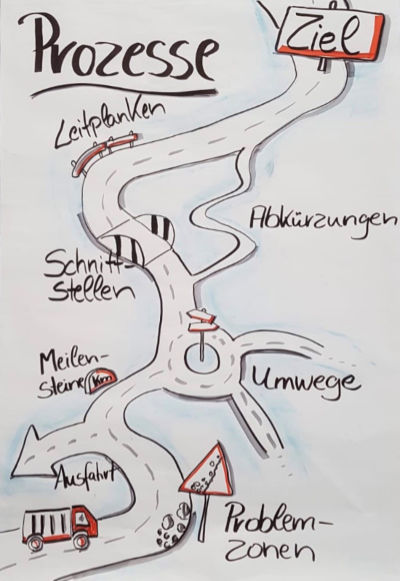 Prozesse
Ziel
Leitplanken
Abkürzungen
Schnitt-
stellen
Meilen-
steine
km
Umwege
Ausfahrt
Problem-
zonen